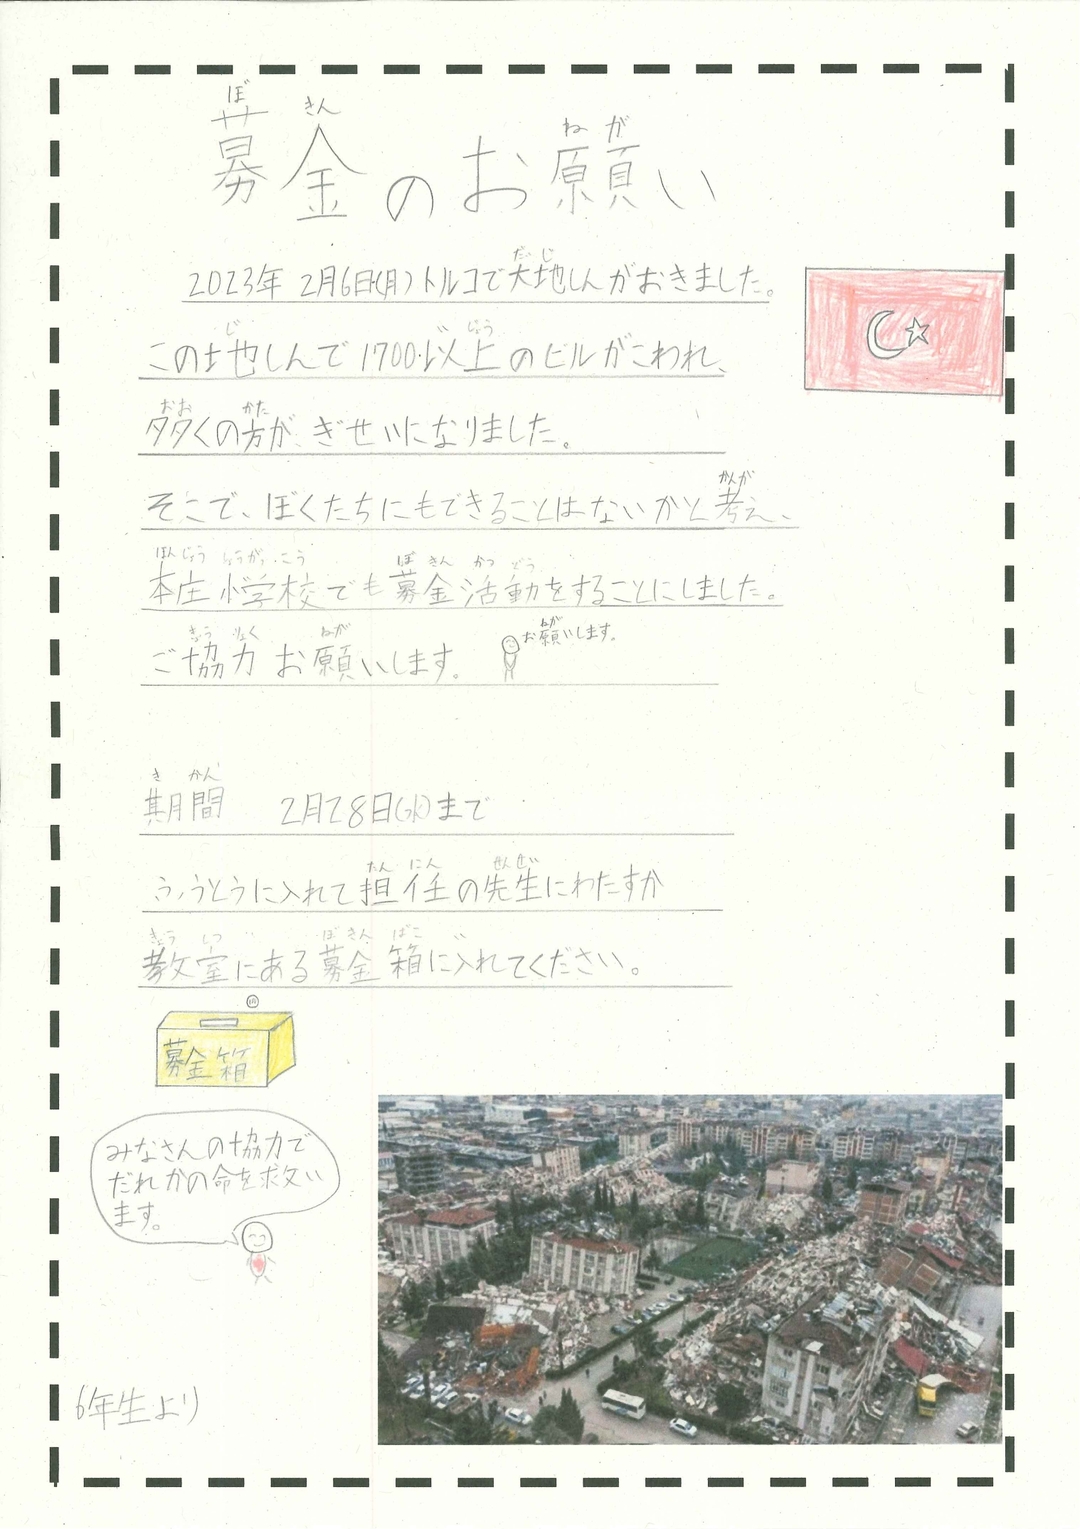 募金のお願い
ぼ きん ね が
2023年 2月6日(月)トルコで大地しんがおきました。
だい じ
この地しんで1700以上のビルがこわれ、
じ い じょう
多くの方がぎせいになりました。
おお かた
そこで、ぼくたちにもできることはないかと考え、
かんが
本庄小学校でも募金活動をすることにしました。
ほんじょう しょうがっこう ぼ きん かつ どう
ご協力お願いします。
きょう りょく ねが
お願いします。
ねが
期間 2月28日(火)まで
き かん
ふうとうに入れて担任の先生にわたすか
たん にん せんせい
教室にある募金箱に入れてください。
きょう しつ ぼ きん ばこ
募金箱
みなさんの協力で
だれかの命を救い
ます。
6年生より